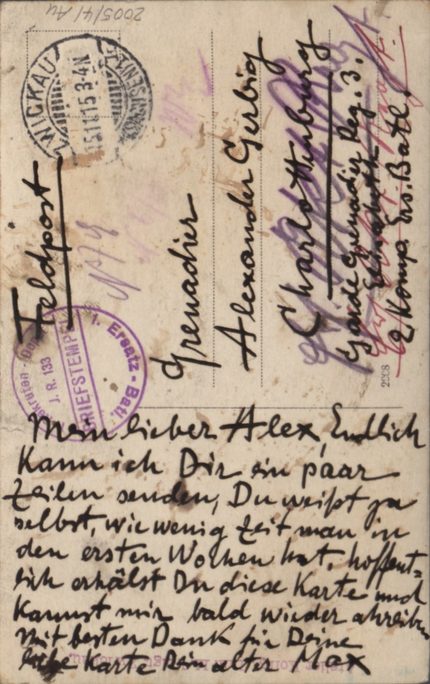 2005/4/Au
ZWICKAU
15.11.15.3-4N
Feldpost
Grenadier
Alexander Gerbig
Charlottenburg
Garde Grenadier Reg. 3.
Elisabeth
2 Komp. Ers. Batl.
1. Ersatz-Batl.
J. R. 133
BRIEFSTEMPEL
2908
Mein lieber Alex, Endlich
kann ich Dir ein paar
Zeilen senden, Du weißt ja
selbst, wie wenig Zeit man in
den ersten Wochen hat, hoffent-
lich erhälst Du diese Karte und
kannst mir bald wieder schreiben
Mit besten Dank für Deine
liebe Karte Dein alter Max